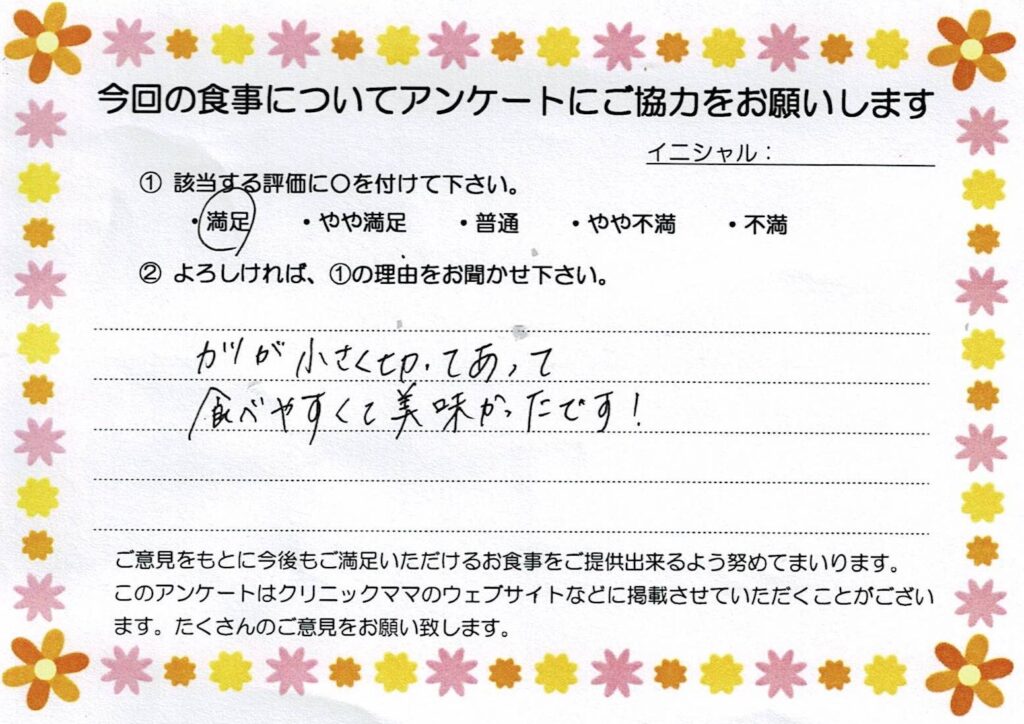 今回の食事についてアンケートにご協力をお願いします
イニシャル：
① 該当する評価に〇を付けて下さい。
・満足　・やや満足　・普通　・やや不満　・不満
② よろしければ、①の理由をお聞かせ下さい。
カツが小さく切ってあって
食べやすくて美味かったです！
ご意見をもとに今後もご満足いただけるお食事をご提供出来るよう努めてまいります。
このアンケートはクリニックママのウェブサイトなどに掲載させていただくことがござい
ます。たくさんのご意見をお願い致します。